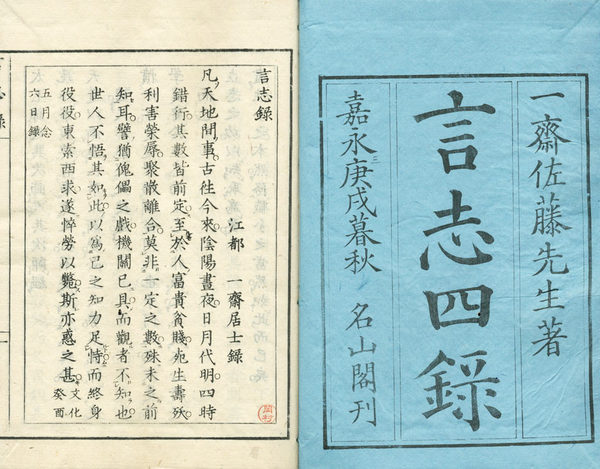 一齋佐藤先生著
言志四錄
嘉永三庚戌暮秋 名山閣刊
言志錄
江都 一齋居士錄
凡天地間事古往今來陰陽晝夜日月代明四時
錯行其數皆前定至於人富貴貧賤死生壽殀
利害榮辱聚散離合莫非一定之數殊未之前
知耳譬猶傀儡之戲機關已具而觀者不知也
世人不悟其如此以爲己之知力足恃而終身
役役東索西求遂悴勞以斃斯亦惑之甚 文化癸酉
五月念六日錄